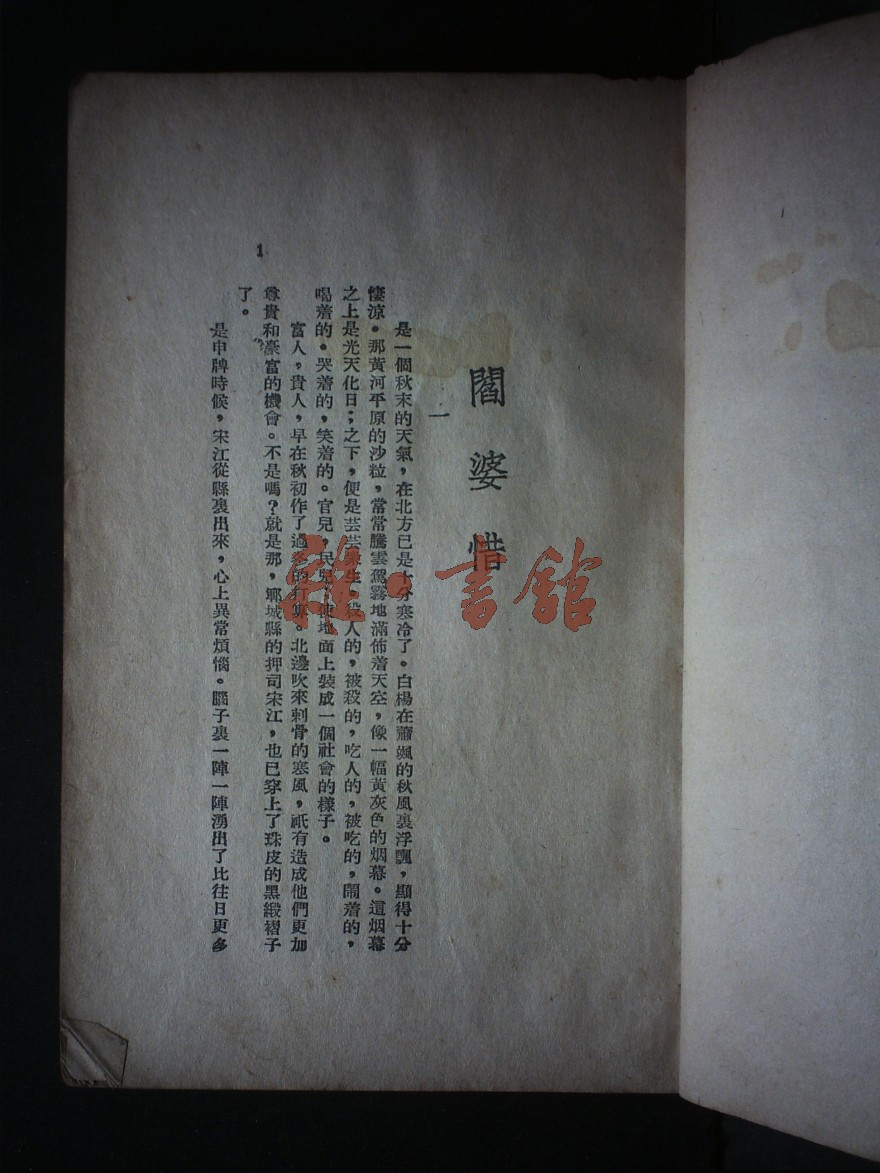 閻婆惜
一
是一個秋末的天氣，在北方已是十分寒冷了。白楊在蕭颯的秋風裏浮飄，顯得十分
悽凉。那黃河平原的沙粒，常常騰雲駕霧地滿佈着天空，像一幅黃灰色的烟幕。這烟幕
之上是光天化日；之下，便是芸芸衆生。殺人的，被殺的，吃人的，被吃的，鬧着的，
喝着的。哭着的，笑着的。官兒，民兒，使地面上裝成一個社會的樣子。
富人，貴人，早在秋初作了過冬的打算。北邊吹來刺骨的寒風，祇有造成他們更加
尊貴和豪富的機會。不是嗎？就是那，鄆城縣的押司宋江，也已穿上了珠皮的黑緞褶子
了。
是申牌時候，宋江從縣裏出來，心上異常煩惱。腦子裏一陣一陣湧出了比往日更多
1
雜·書館